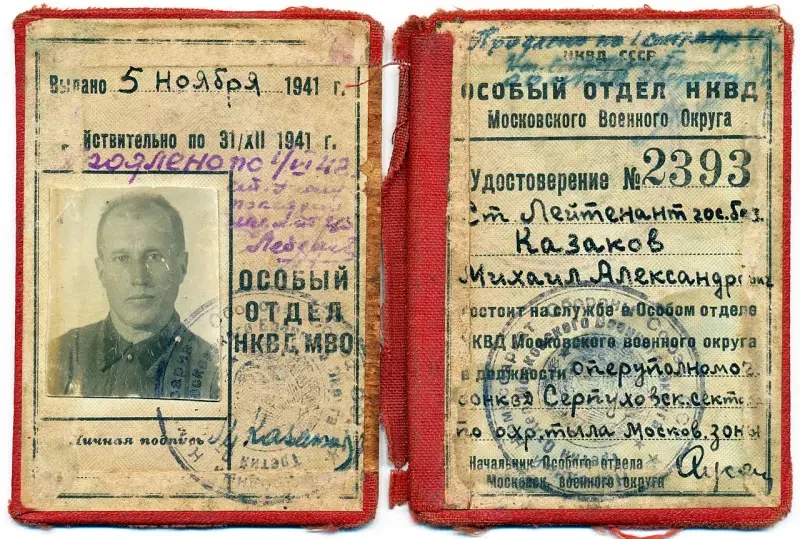 Выдано 5 ноября 1941 г.
йствительно по 31/XII 1941 г.
одлено по 1/VI 42
ОСОБЫЙ
ОТДЕЛ
НКВД МВО
ичная подпись
НКВД СССР
ОСОБЫЙ ОТДЕЛ НКВД
Московского Военного Округа
Удостоверение № 2393
Ст Лейтенант гос.без.
Казаков
Михаил Александрович
остоит на службе в Особом отделе
КВД Московского военного округа
в должности оперуполномоч.
Серпуховск.сект
по охр.тыла Москов.зоны
Начальник Особого отдела
Московск. военного округа